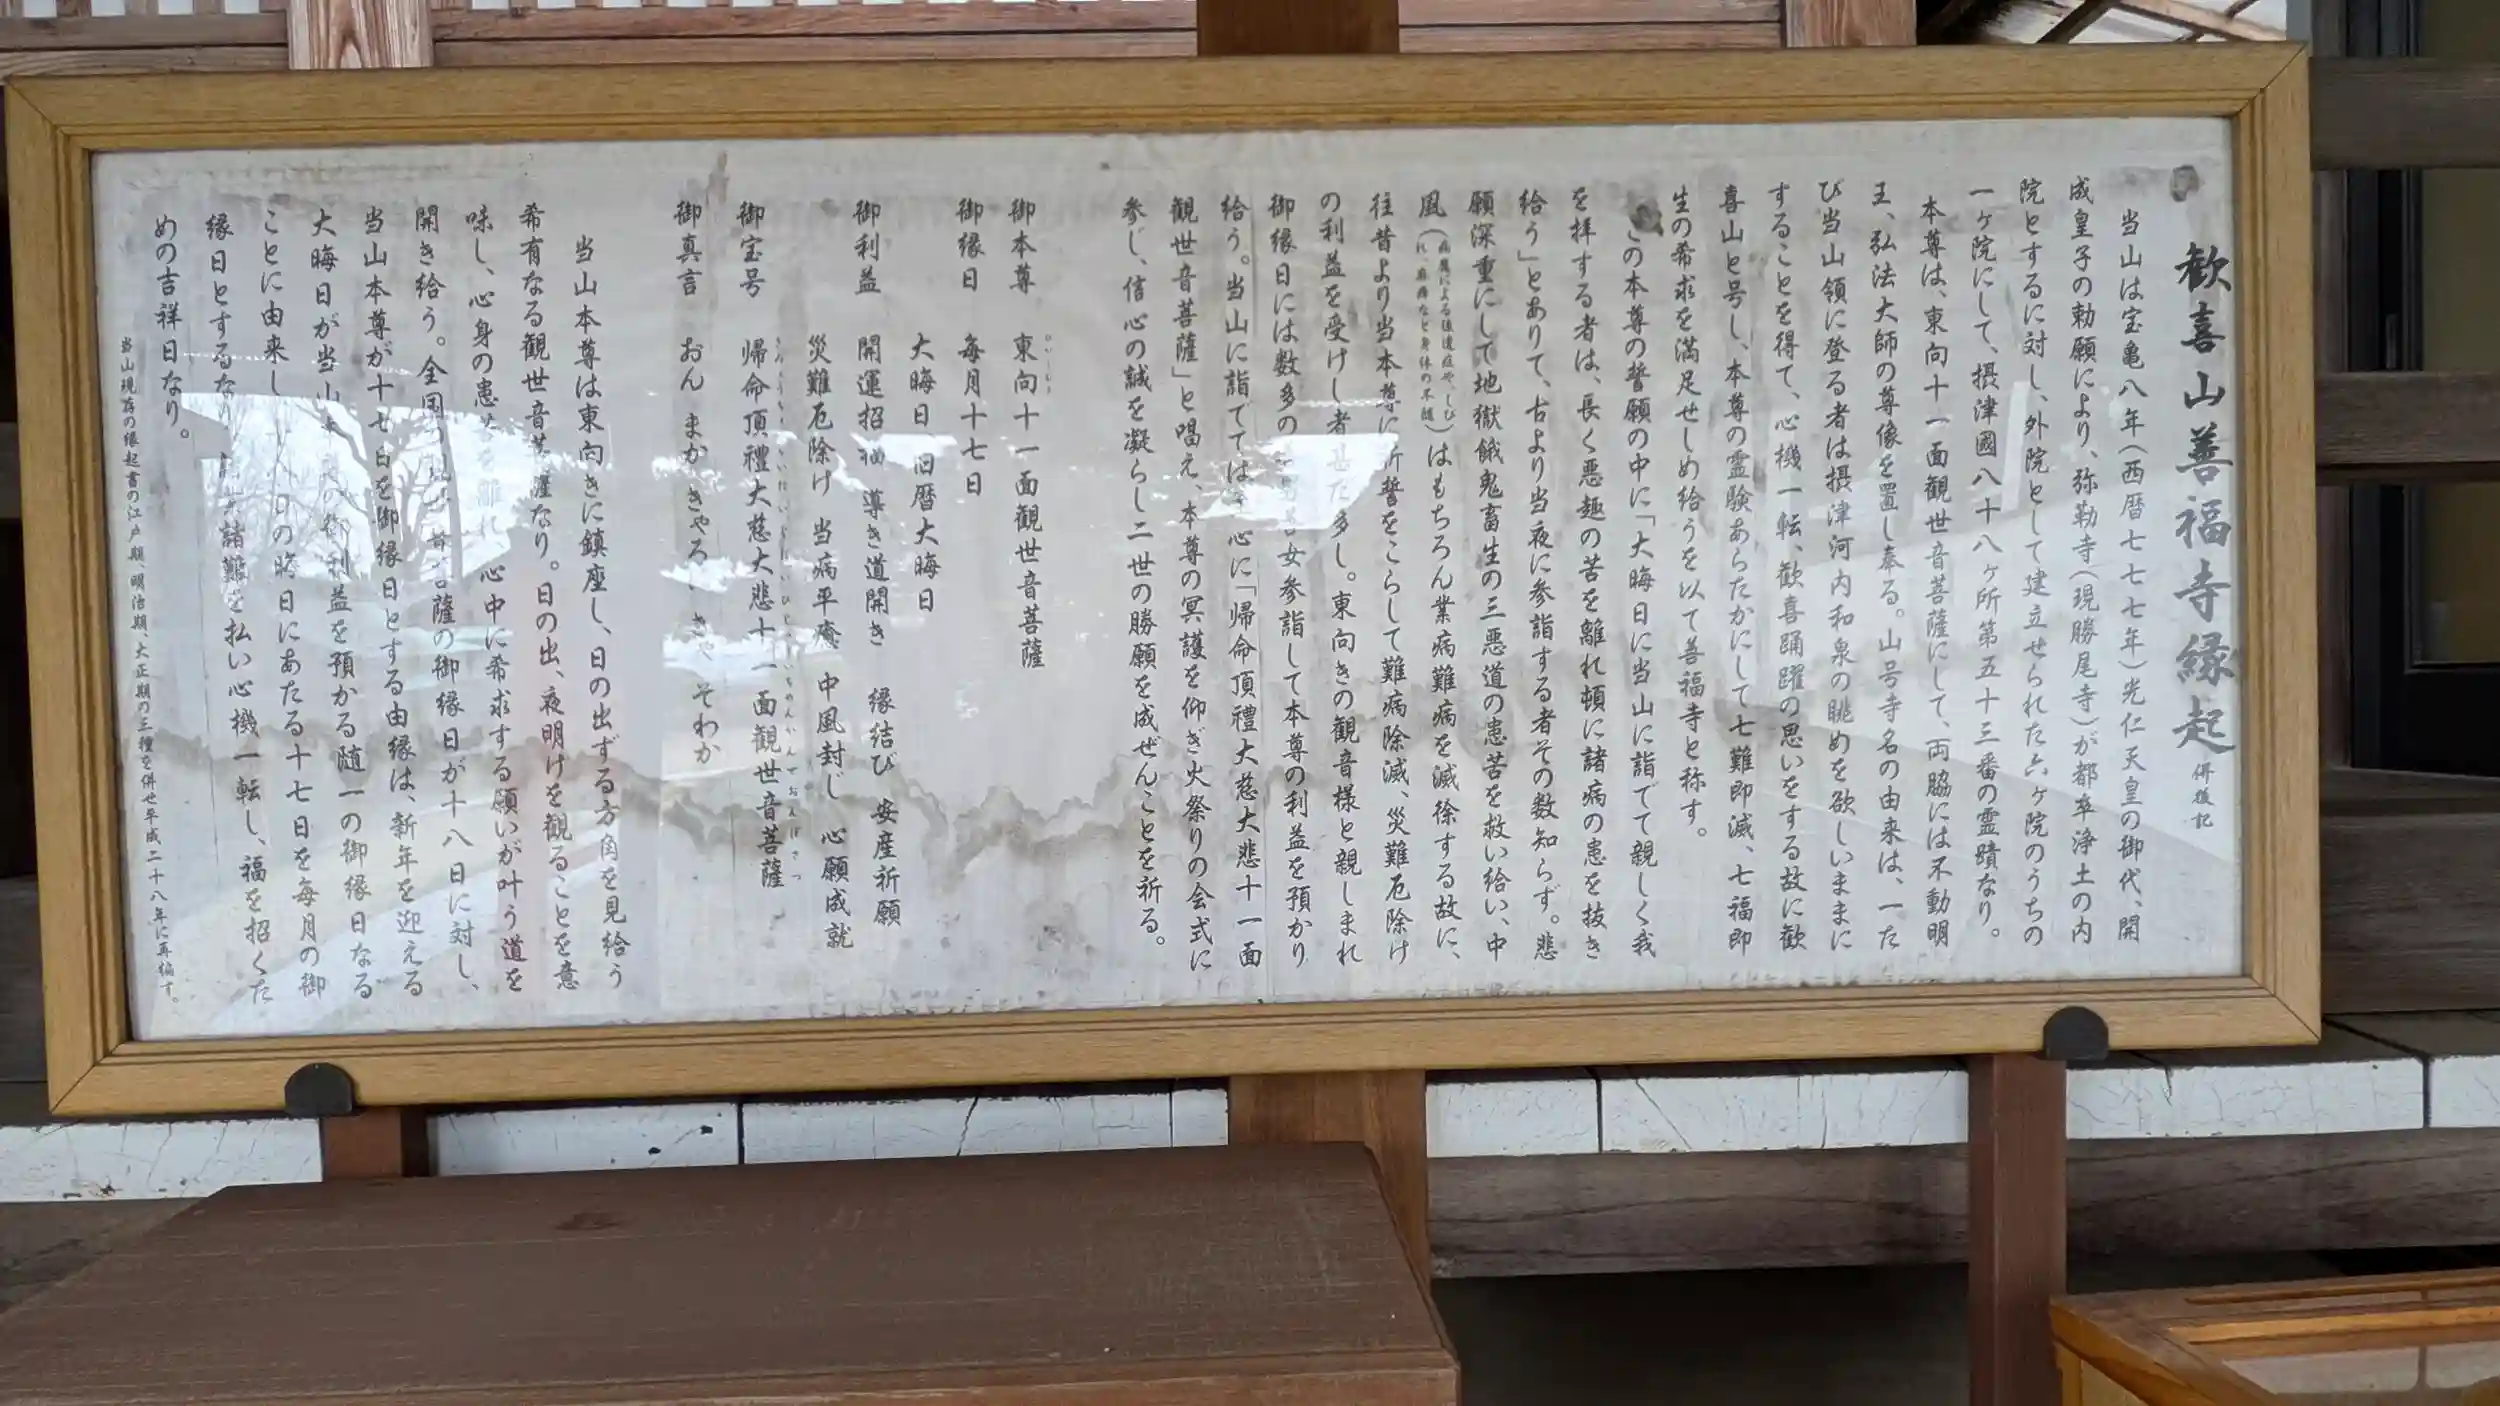 歓喜山善福寺縁起 併後記
当山は宝亀八年(西暦七七七年)光仁天皇の御代、開
成皇子の勅願により、弥勒寺(現勝尾寺)が都卒浄土の内
院とするに対し、外院として建立せられた六ヶ院のうちの
一ヶ院にして、摂津國八十八ヶ所第五十三番の霊蹟なり。
本尊は、東向十一面観世音菩薩にして、両脇には不動明
王、弘法大師の尊像を置し奉る。山号寺名の由来は、一た
び当山領に登る者は摂津河内和泉の眺めを欲しいままに
することを得て、心機一転、歓喜踊躍の思いをする故に歓
喜山と号し、本尊の霊験あらたかにして七難即滅、七福即
生の希求を満足せしめ給うを以て善福寺と称す。
この本尊の誓願の中に「大晦日に当山に詣でて親しく我
を拝する者は、長く悪趣の苦を離れ頓に諸病の患を抜き
給う」とありて、古より当夜に参詣する者その数知らず。悲
願深重にして地獄餓鬼畜生の三悪道の患苦を救い給い、中
風(病魔による後遺症や、しびれ、麻痺など身体の不随)はもちろん業病難病を滅徐する故に、
往昔より当本尊に祈誓をこらして難病除滅、災難厄除け
の利益を受けし者甚だ多し。東向きの観音様と親しまれ
御縁日には数多の善男善女参詣して本尊の利益を預かり
給う。当山に詣でては心に「帰命頂禮大慈大悲十一面
観世音菩薩」と唱え、本尊の冥護を仰ぎ火祭りの会式に
参じ、信心の誠を凝らし二世の勝願を成ぜんことを祈る。
御本尊 東向十一面観世音菩薩
御縁日 毎月十七日
大晦日 旧暦大晦日
御利益 開運招福 導き道開き 縁結び 安産祈願
災難厄除け 当病平癒 中風封じ 心願成就
御宝号 帰命頂禮大慈大悲十一面観世音菩薩
御真言 おん まか きゃろ きゃ そわか
当山本尊は東向きに鎮座し、日の出ずる方角を見給う
希有なる観世音菩薩なり。日の出、夜明けを観ることを意
味し、心身の患苦を離れ、心中に希求する願いが叶う道を
開き給う。全国の観世音菩薩の御縁日が十八日に対し、
当山本尊が十七日を御縁日とする由縁は、新年を迎える
大晦日が当山の御利益を預かる随一の御縁日なる
ことに由来し 日の晦日にあたる十七日を毎月の御
縁日とするなり 諸難を払い心機一転し、福を招くた
めの吉祥日なり。
当山現存の縁起書の江戸期、明治期、大正期の三種を併せ平成二十八年に再編す。